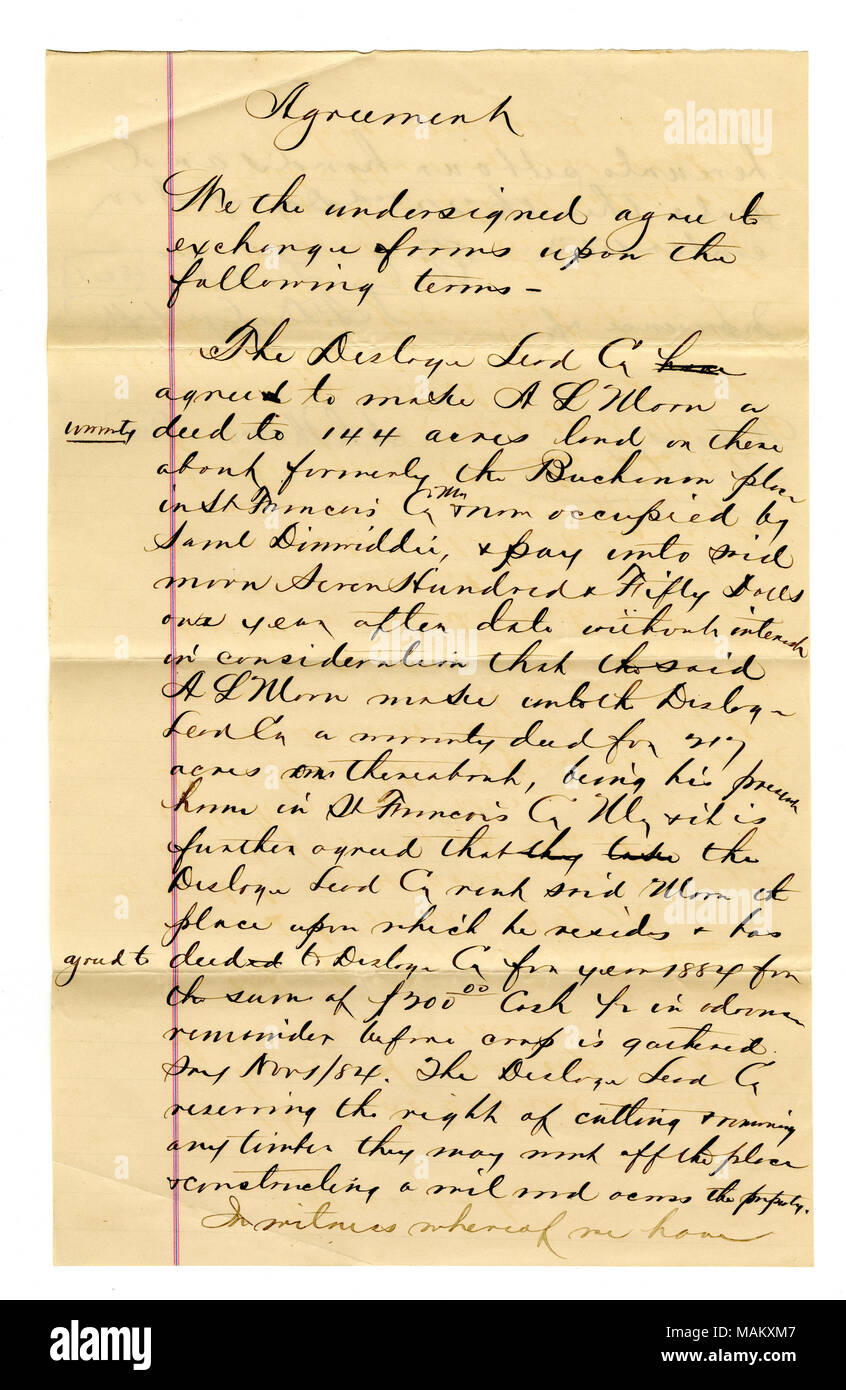 Agreement
We the undersigned agree to
exchange farms upon the
following terms -
The Desloge Lead Co have
agreed to make A L Morn a
warranty deed to 144 acres land or there
about formerly the Buchanan place
in St Francois Co Mo & now occupied by
Saml Dinwiddie, & pay unto said
morn Seven Hundred & Fifty Dolls
one year after date without interest
in consideration that the said
A L Morn make unto the Desloge
Lead Co a warranty deed for 217
acres or thereabout, being his present
home in St Francois Co Mo & it is
further agreed that they take the
Desloge Lead Co rent said Morn the
place upon which he resides & has
agreed to deeded to Desloge Co for year 1884 for
the sum of $200.00 Cash 1/2 in advance
remainder before crop is gathered
say Nov 1/84. The Desloge Lead Co
reserving the right of cutting & removing
any timber they may want off the place
& constructing a rail road across the property.
In witness whereof we have
alamy
Image ID: MAKXM7
www.alamy.com